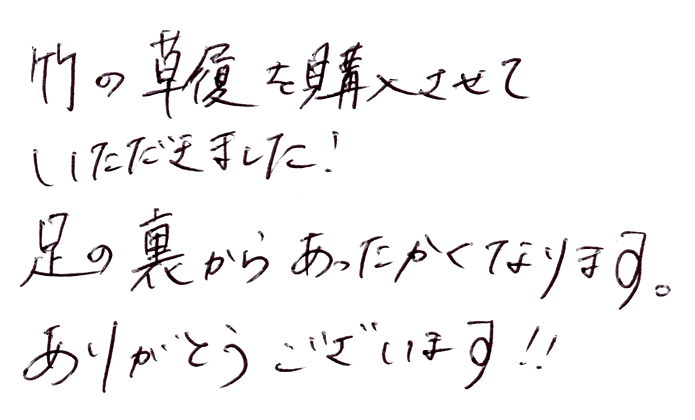 竹の草履を購入させて
いただきました!
足の裏からあったかくなります。
ありがとうございます!!